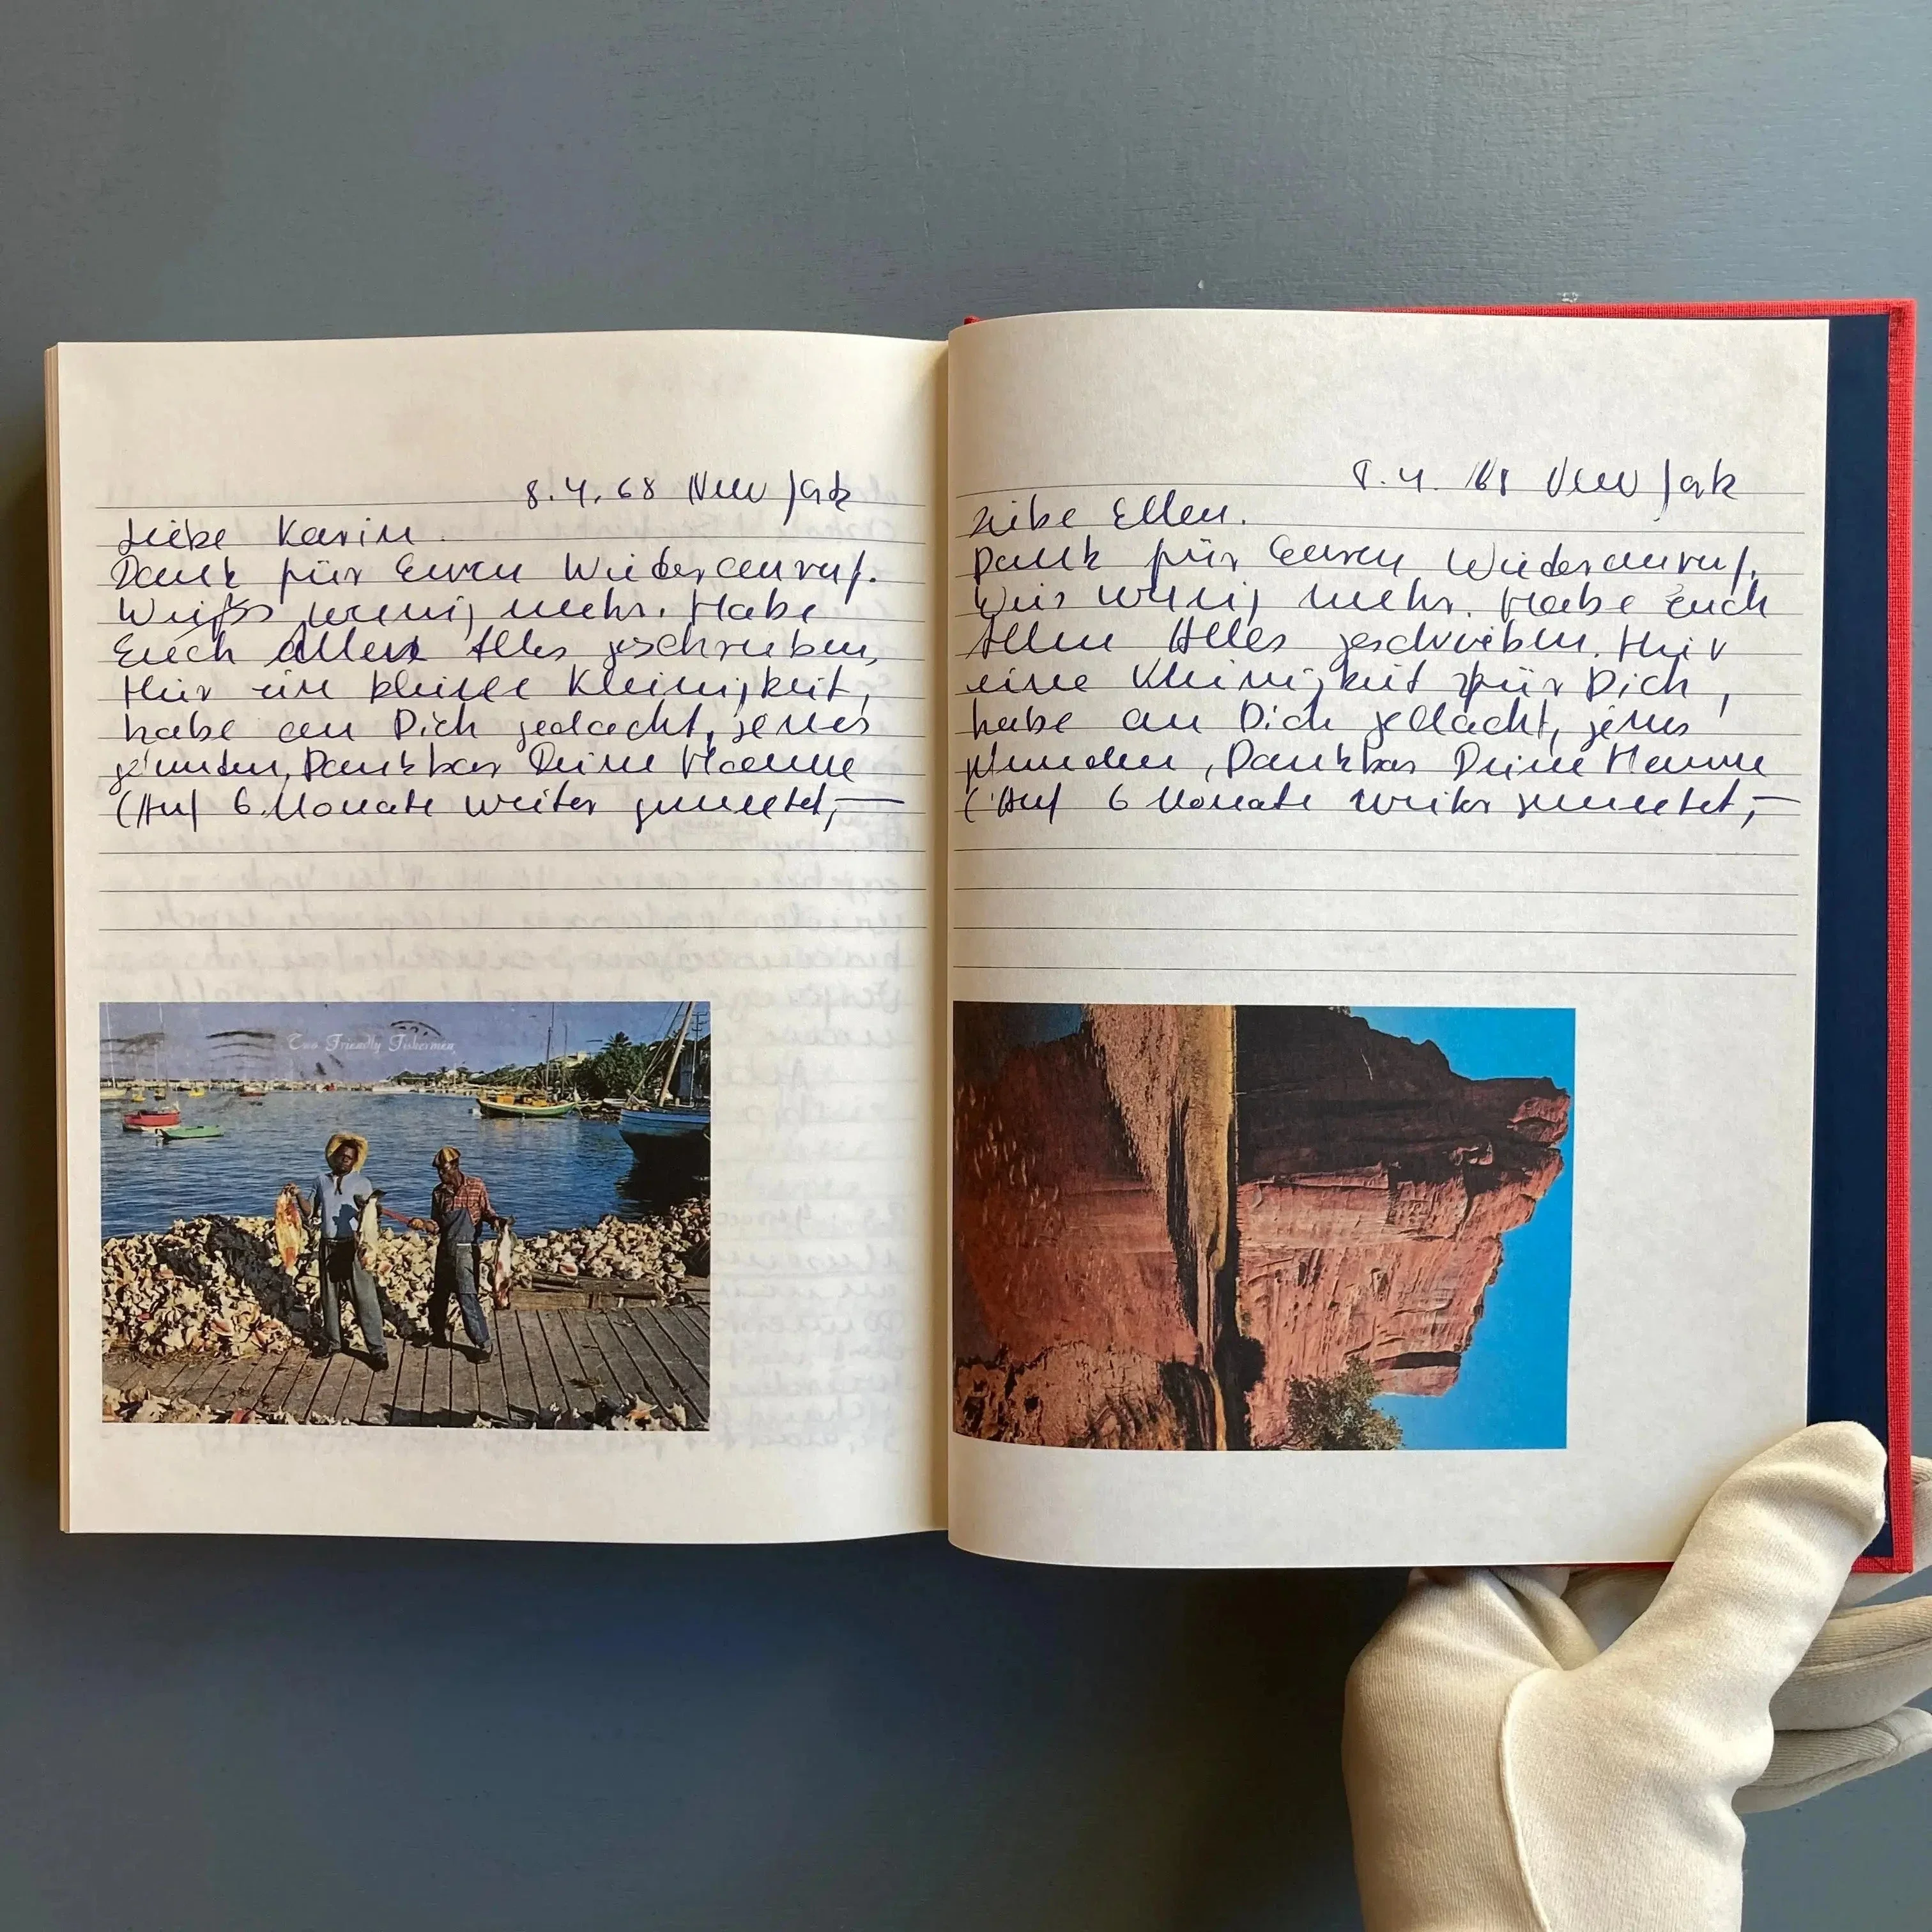 8.4.68 New Jork
Liebe Karin.
Dank für Euren Wiederanruf.
Weiß wenig mehr. Habe
Euch allen Alles geschrieben,
Hier ein kleine Kleinigkeit,
habe an Dich gedacht, jenes
gefunden, Dankbar Deine Hanne
(Auf 6 Monate weiter gemietet,—
Two Friendly Fishermen
8.4.68 New Jork
Liebe Ellen.
Dank für Euren Wiederanruf.
Weis wenig mehr. Habe Euch
Allen Alles geschrieben. Hier
eine Kleinigkeit für Dich,
habe an Dich gedacht, jenes
gefunden, Dankbar Deine Hanne
(Auf 6 Monate weiter gemietet,—